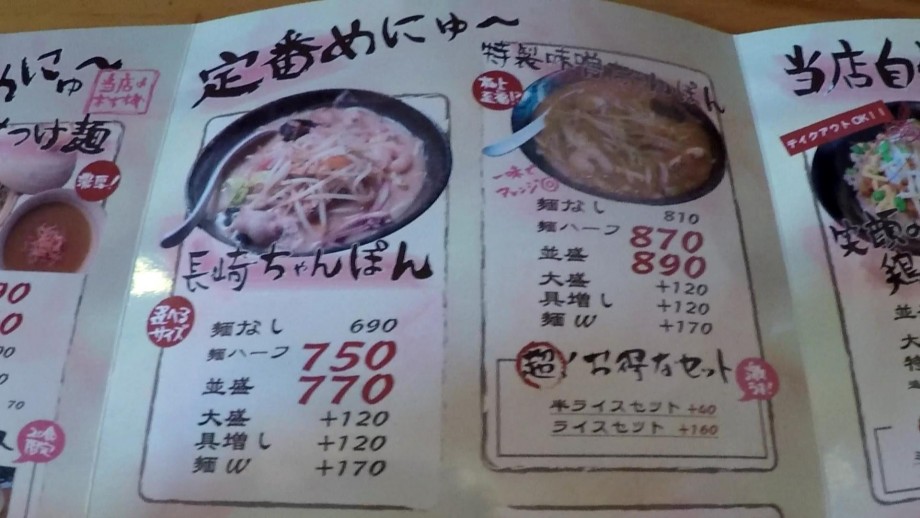 定番めにゅ～
当店の
おすすめ
つけ麺
濃厚!
長崎ちゃんぽん
選べる
サイズ
麺なし 690
麺ハーフ 750
並盛 770
大盛 +120
具増し +120
麺W +170
特製味噌ちゃんぽん
極上
一味で
アレンジ◎
麺なし 810
麺ハーフ 870
並盛 890
大盛 +120
具増し +120
麺W +170
超!お得なセット
半ライスセット +60
ライスセット +160
当店自
テイクアウトOK!!
笑顔
鶏
並
大
70